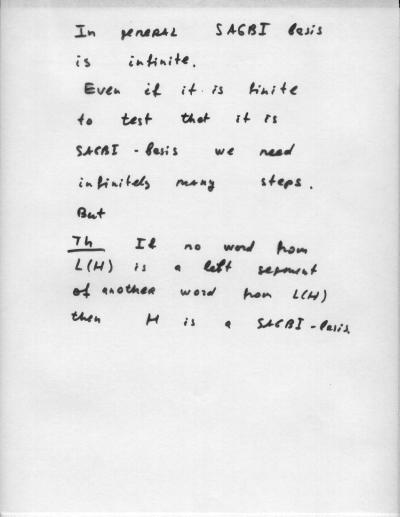 In general SAGBI basis
is infinite.
Even if it is finite
to test that it is
SAGBI - basis we need
infinitely many steps.
But
Th If no word from
L(H) is a left segment
of another word from L(H)
then H is a SAGBI - basis